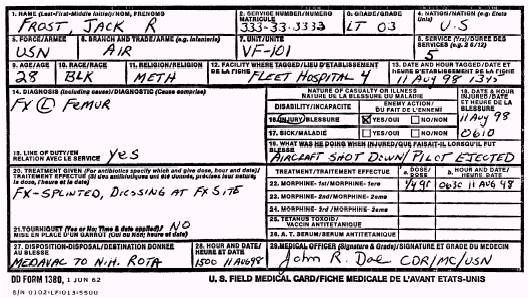 1. NAME (Last-First-Middle Initial)/NOM, PRENOMS
FROST, JACK R
2. SERVICE NUMBER/NUMERO MATRICULE
333-33-3333
3. GRADE/GRADE
LT 03
4. NATION/NATION (e.g. Etats Unis)
U.S
5. FORCE/ARMEE
USN
6. BRANCH AND TRADE/ARME (e.g. Infanterie)
AIR
7. UNIT/UNITE
VF-101
8. SERVICE (Yrs)/DUREE DES SERVICES (e.g. 2 6/12)
5
9. AGE/AGE
28
10. RACE/RACE
BLK
11. RELIGION/RELIGION
METH
12. FACILITY WHERE TAGGED/LIEU D'ETABLISSEMENT DE LA FICHE
FLEET HOSPITAL 4
13. DATE AND HOUR TAGGED/DATE ET HEURE D'ETABLISSEMENT DE LA FICHE
11 AUG 98 1345
14. DIAGNOSIS (Including cause)/DIAGNOSTIC (Cause comprise)
FX Ⓛ FEMUR
NATURE OF CASUALTY OR ILLNESS
NATURE DE LA BLESSURE OU MALADIE
DISABILITY/INCAPACITE
ENEMY ACTION/
DU FAIT DE L'ENNEMI
16. INJURY/BLESSURE
X YES/OUI
NO/NON
17. SICK/MALADIE
YES/OUI
NO/NON
18. DATE & HOUR INJURED/DATE ET HEURE DE LA BLESSURE
11 Aug 98
0610
15. LINE OF DUTY/EN RELATION AVEC LE SERVICE
yes
19. WHAT WAS HE DOING WHEN INJURED/QUE FAISAIT-IL LORSQU'IL FUT BLESSE
AIRCRAFT SHOT DOWN/PILOT EJECTED
20. TREATMENT GIVEN (For antibiotics specify which and give dose, hour and date)/
TRAITEMENT EFFECTUE (Si des antibiotiques ont été donnés, préciser leur nature la dose, l'heure et la date)
FX-SPLINTED, DRESSING AT FX SITE
TREATMENT/TRAITEMENT EFFECTUE
a. DOSE/DOSE
b. HOUR AND DATE/HEURE ET DATE
22. MORPHINE-1st/MORPHINE-1ere
1/4 gr
0630 11 AUG 98
23. MORPHINE-2nd/MORPHINE-2eme
24. MORPHINE-3rd/MORPHINE-3eme
25. TETANUS TOXOID/
VACCIN ANTITETANIQUE
26. A.T. SERUM/SERUM ANTITETANIQUE
21. TOURNIQUET (Yes or No; Time & date applied)/
MISE EN PLACE D'UN GARROT (Oui ou Non; heure et date)
NO
27. DISPOSITION-DISPOSAL/DESTINATION DONNEE AU BLESSE
MEDAVAC TO N.H. ROTA
28. HOUR AND DATE/HEURE ET DATE
1500 11 AUG 98
29. MEDICAL OFFICER (Signature & Grade)/SIGNATURE ET GRADE DU MEDECIN
John R. Doe CDR/MC/USN
DD FORM 1380, 1 JUN 62
U. S. FIELD MEDICAL CARD/FICHE MEDICALE DE L'AVANT ETATS-UNIS
S/N 0102-LF-013-5500